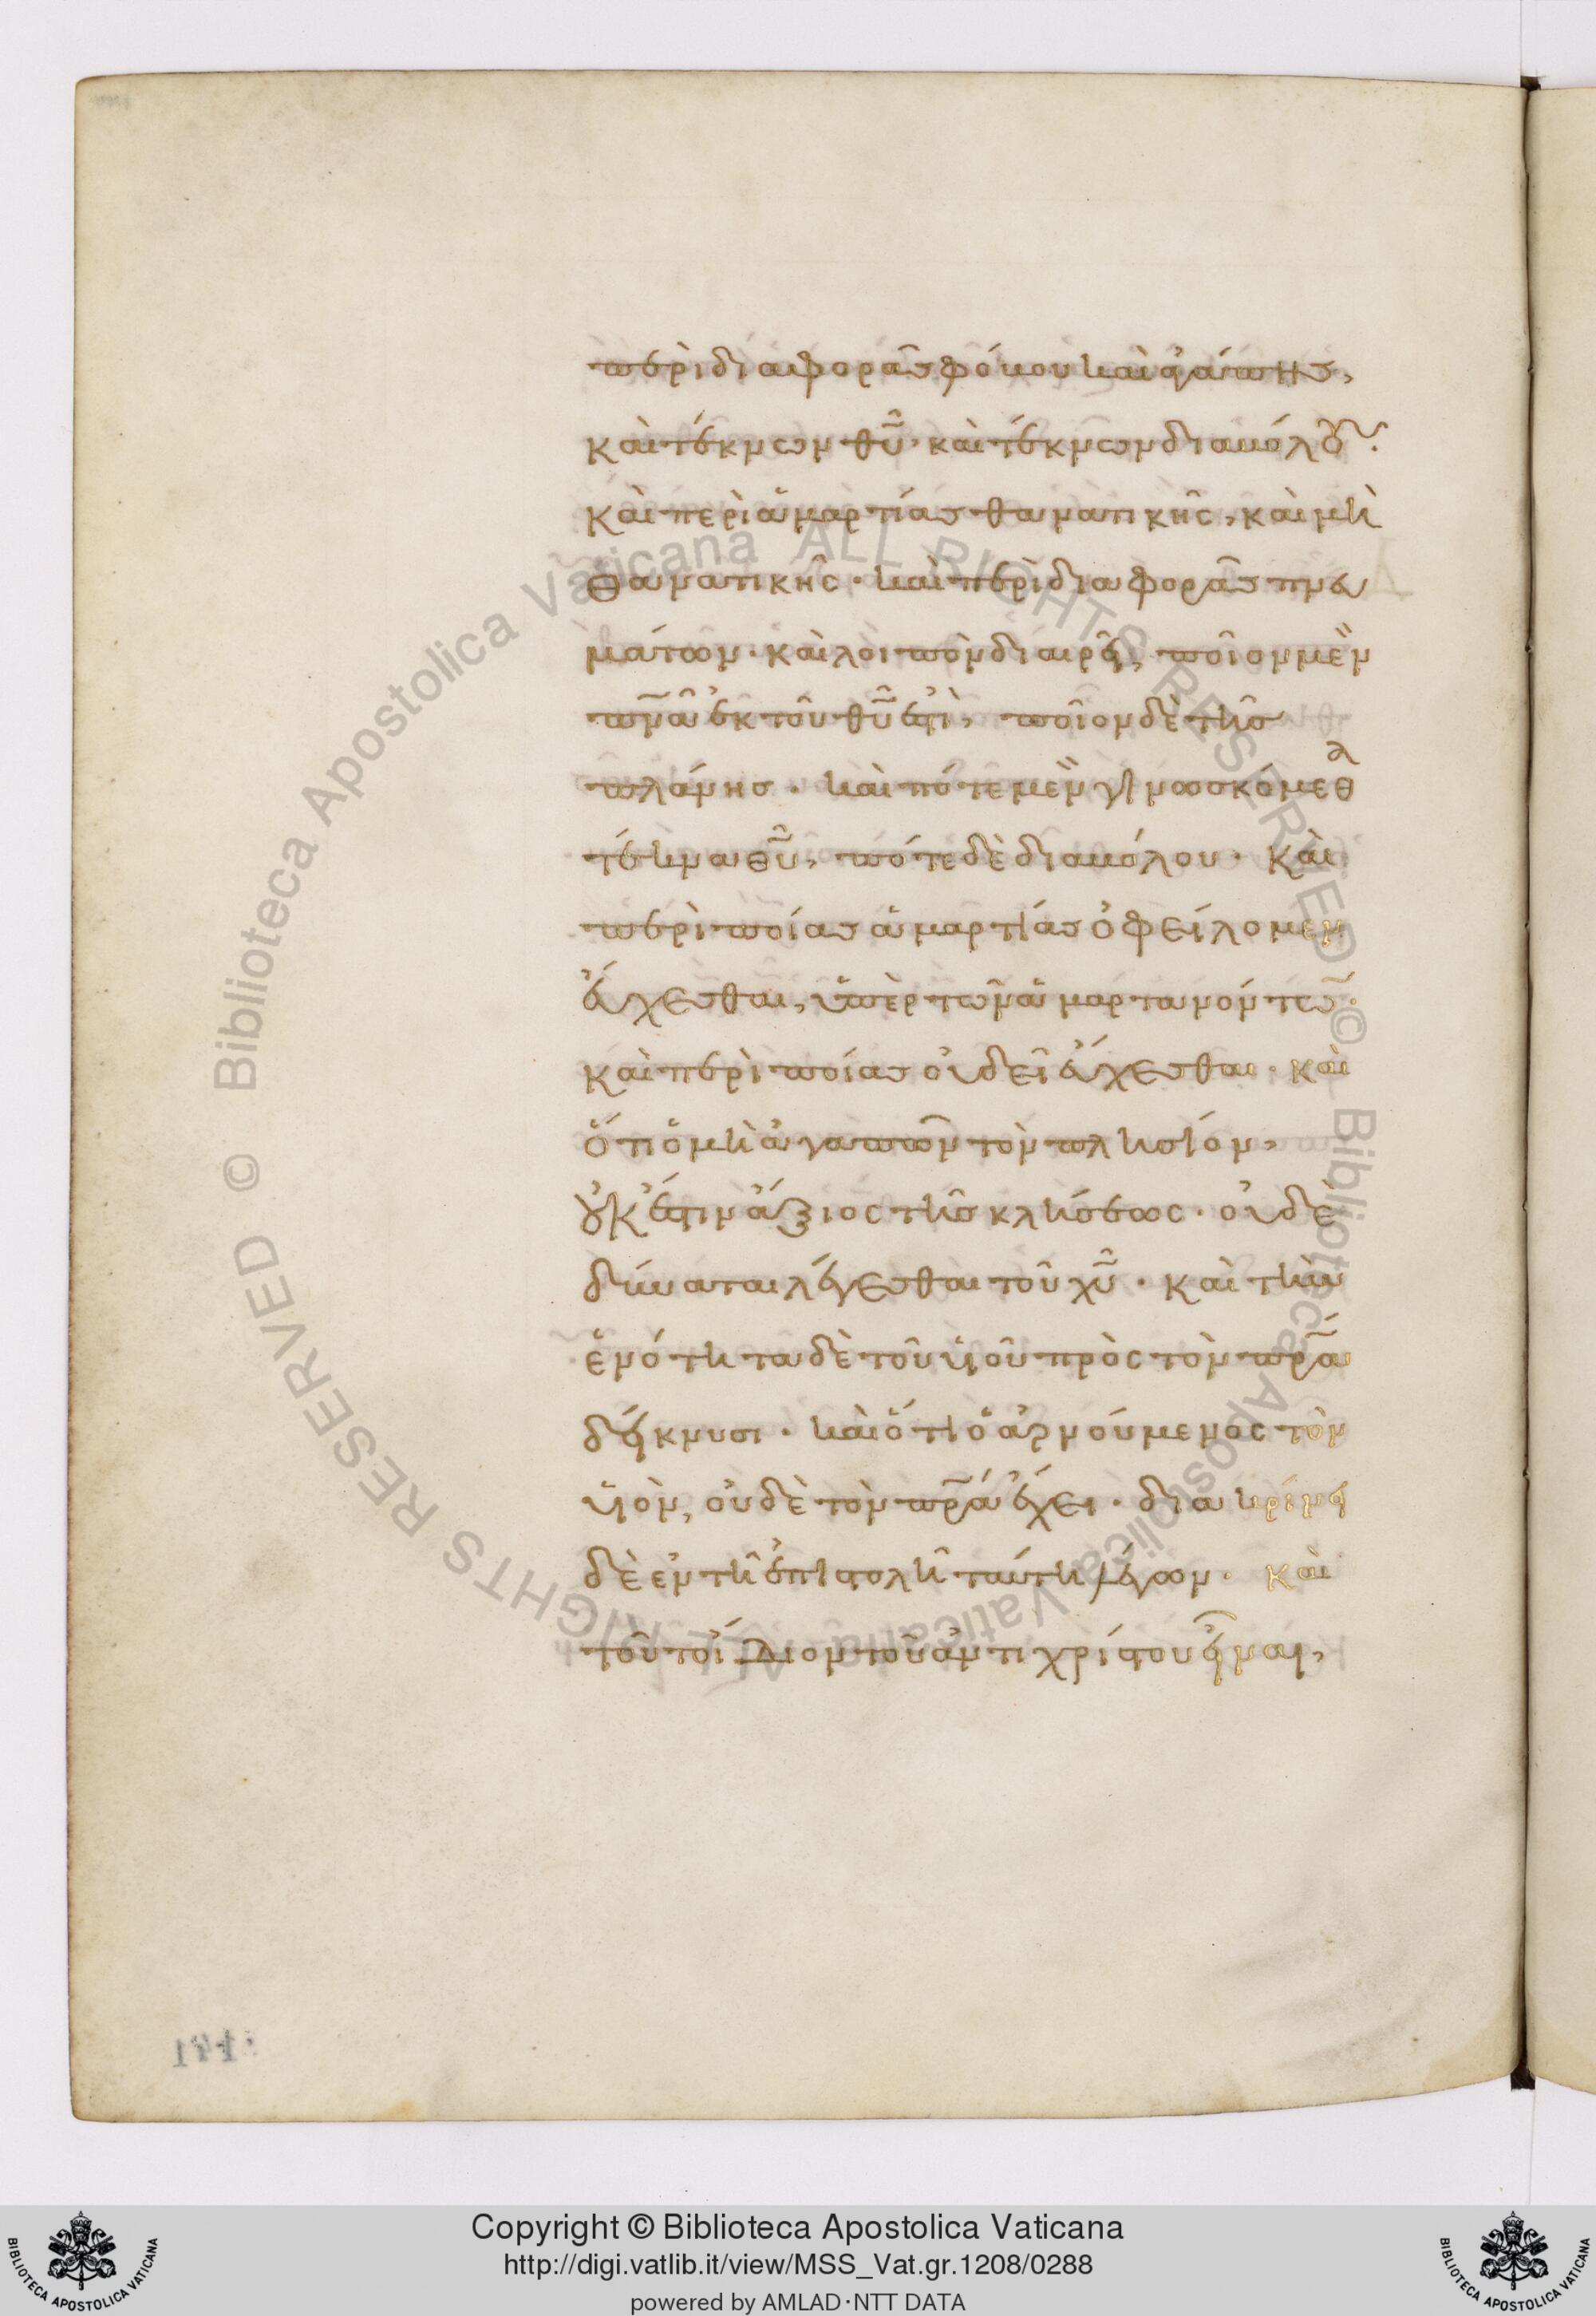 περὶ διαφορᾶς φόνου καὶ ἀγάπης,
καὶ τέκνων θῦ· καὶ τέκνων διαβόλου·
καὶ περὶ ἁμαρτίας θανατικῆς, καὶ μὴ
θανατικῆς· καὶ περὶ διαφορᾶς πνευ
μάτων· καὶ λοιπὸν διαιρεῖ, ποῖον μὲν
πνᾶ ἐκ τοῦ θῦ ἐστὶ, ποῖον δὲ τῆς
πλάνης· καὶ πότε μὲν γινωσκόμεθα
τέκνα θῦ, πότε δὲ διαβόλου· καὶ
περὶ ποίας ἁμαρτίας ὀφείλομεν
εὔχεσθαι, ὑπὲρ τῶν ἁμαρτανόντων·
καὶ περὶ ποίας οὐ δεῖ εὔχεσθαι· καὶ
ὅτι ὁ μὴ ἀγαπῶν τὸν πλησίον,
οὐκ ἔστιν ἄξιος τῆς κλήσεως· οὐδὲ
δύναται λέγεσθαι τοῦ χῦ· καὶ τὴν
ἑνότητα δὲ τοῦ υἱοῦ πρὸς τὸν πρᾶ
δείκνυσι· καὶ ὅτι ὁ ἀρνούμενος τὸν
υἱὸν, οὐδὲ τὸν πρᾶ ἔχει· διακρίνει
δὲ ἐν τῆ ἐπιστολῆ ταύτη λέγων· καὶ
τοῦτο ἴδιον τοῦ ἀντιχρίστου εἶναι,
Copyright © Biblioteca Apostolica Vaticana
http://digi.vatlib.it/view/MSS_Vat.gr.1208/0288
powered by AMLAD·NTT DATA
BIBLIOTECA APOSTOLICA VATICANA
BIBLIOTECA APOSTOLICA VATICANA
© Biblioteca Apostolica Vaticana ALL RIGHTS RESERVED
© Biblioteca Apostolica Vaticana ALL RIGHTS RESERVED